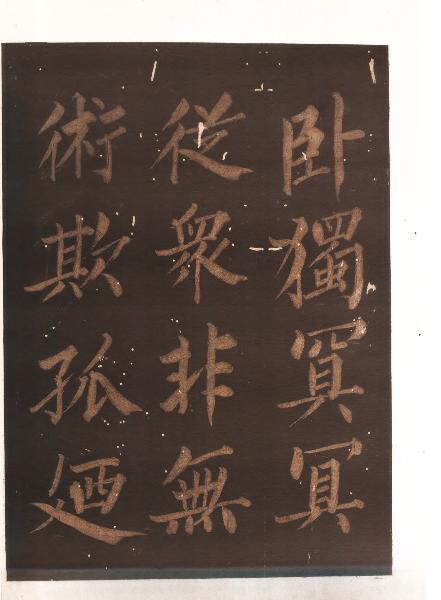 卧獨冥冥
從衆非無
術欺孤廼